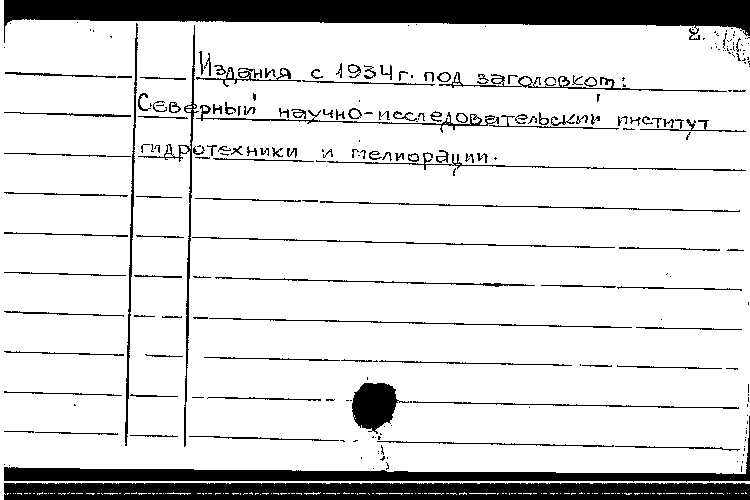 2.
Издания с 1934 г. под заголовком:
Северный научно-исследовательский институт
гидротехники и мелиорации.